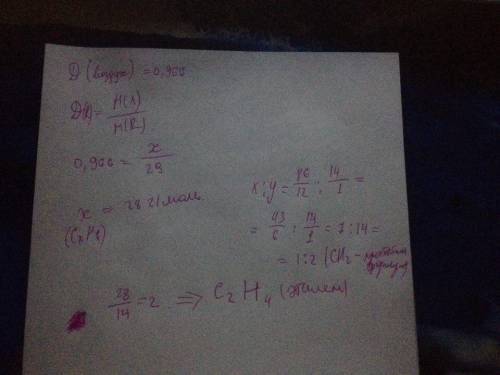 D (воздух) = 0,966
D(x) = M(A) / M(B)
0,966 = x / 29
x = 28 г/моль
(CxHy)
x : y = 86/12 : 14/1 =
= 43/6 : 14/1 = 7 : 14 =
= 1 : 2 (CH2 - простейшая формула)
28/14 = 2 ⇒ C2H4 (этилен)